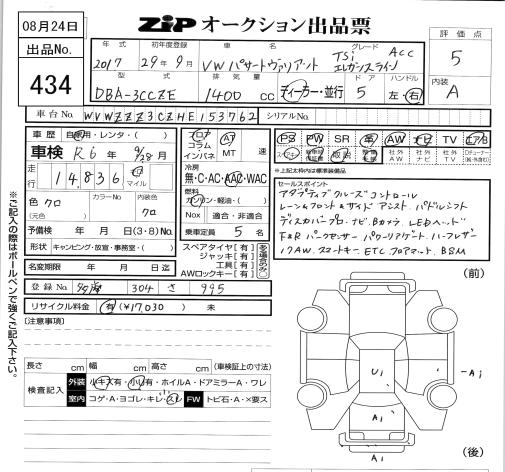 08月24日
ZIP オークション出品票
評価点
5
内装
A
出品No.
434
年式 初年度登録 車名 グレード
2017 29年9月 VW パサートヴァリアント TSi エレガンスライン ACC
型式 排気量 ドア ハンドル
DBA-3CCZE 1400 cc ディーラー・並行 5 左・右
車台No. WVWZZZ3CZHE153762 シリアルNo.
車歴 自家用・レンタ・( )
車検 R6年 9/28月
走行 14,836 km マイル
色 クロ カラーNo 内装色 クロ
(元色)
予備検 年 月 日(3・8)No.
形状 キャンピング・放置・事務室・( )
名変期限 年 月 日迄
フロア コラム インパネ AT MT 速
冷房
無・C・AC・AAC・WAC
燃料
ガソリン・軽油・( )
Nox 適合・非適合
乗車定員 5 名
スペアタイヤ[有]
ジャッキ[有]
工具[有]
AWロックキー[有]
PS PW SR 革 AW ナビ TV エアB
社外AW 社外ナビ 社外TV
※上記太枠内は標準装備品
セールスポイント
アダプティブクルーズコントロール
レーン&フロント&サイドアシスト パドルシフト
ディスカバープロ・ナビ Bカメラ LEDヘッド
F&Rパークセンサー パワーリアゲート ハーフレザー
17AW スマートキー ETC フロアマット BSM
登録No. 304 さ 995
リサイクル料金 有(¥17,030) 未
[注意事項]
長さ cm 幅 cm 高さ cm (車検証上の寸法)
検査記入 外装 小キズ有・小凹有・ホイルA・ドアミラーA・ワレ
室内 コゲ・A・ヨゴレ・キレ・スレ FW トビ石・A・×要ス
※ご記入の際はボールペンで強くご記入下さい。
(前)
U1
A1
A1
A1
(後)